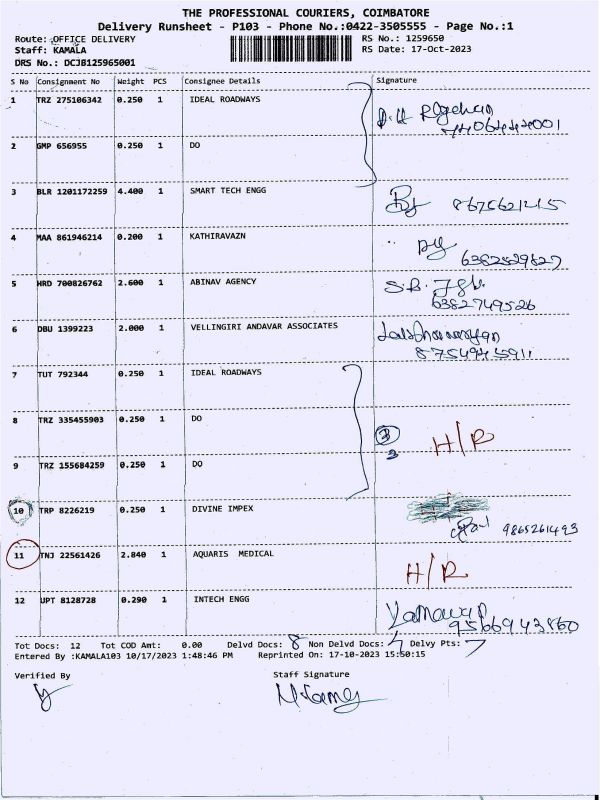 THE PROFESSIONAL COURIERS, COIMBATORE
Delivery Runsheet - P103 - Phone No.:0422-3505555 - Page No.:1
Route: OFFICE DELIVERY RS No.: 1259650
Staff: KAMALA RS Date: 17-Oct-2023
DRS No.: DCJB125965001
S No Consignment No Weight PCS Consignee Details Signature
1 TRZ 275106342 0.250 1 IDEAL ROADWAYS
2 GMP 656955 0.250 1 DO
3 BLR 1201172259 4.400 1 SMART TECH ENGG
4 MAA 861946214 0.200 1 KATHIRAVAZN
6382829827
5 HRD 700826762 2.600 1 ABINAV AGENCY
6382749526
6 DBU 1399223 2.000 1 VELLINGIRI ANDAVAR ASSOCIATES
7 TUT 792344 0.250 1 IDEAL ROADWAYS
8 TRZ 335455903 0.250 1 DO
H/R
9 TRZ 155684259 0.250 1 DO
10 TRP 8226219 0.250 1 DIVINE IMPEX
9865261493
11 TNJ 22561426 2.840 1 AQUARIS MEDICAL
H/R
12 UPT 8128728 0.290 1 INTECH ENGG
9566943860
Tot Docs: 12 Tot COD Amt: 0.00 Delvd Docs: 8 Non Delvd Docs: 4 Delvy Pts: 7
Entered By :KAMALA103 10/17/2023 1:48:46 PM Reprinted On: 17-10-2023 15:50:15
Verified By Staff Signature